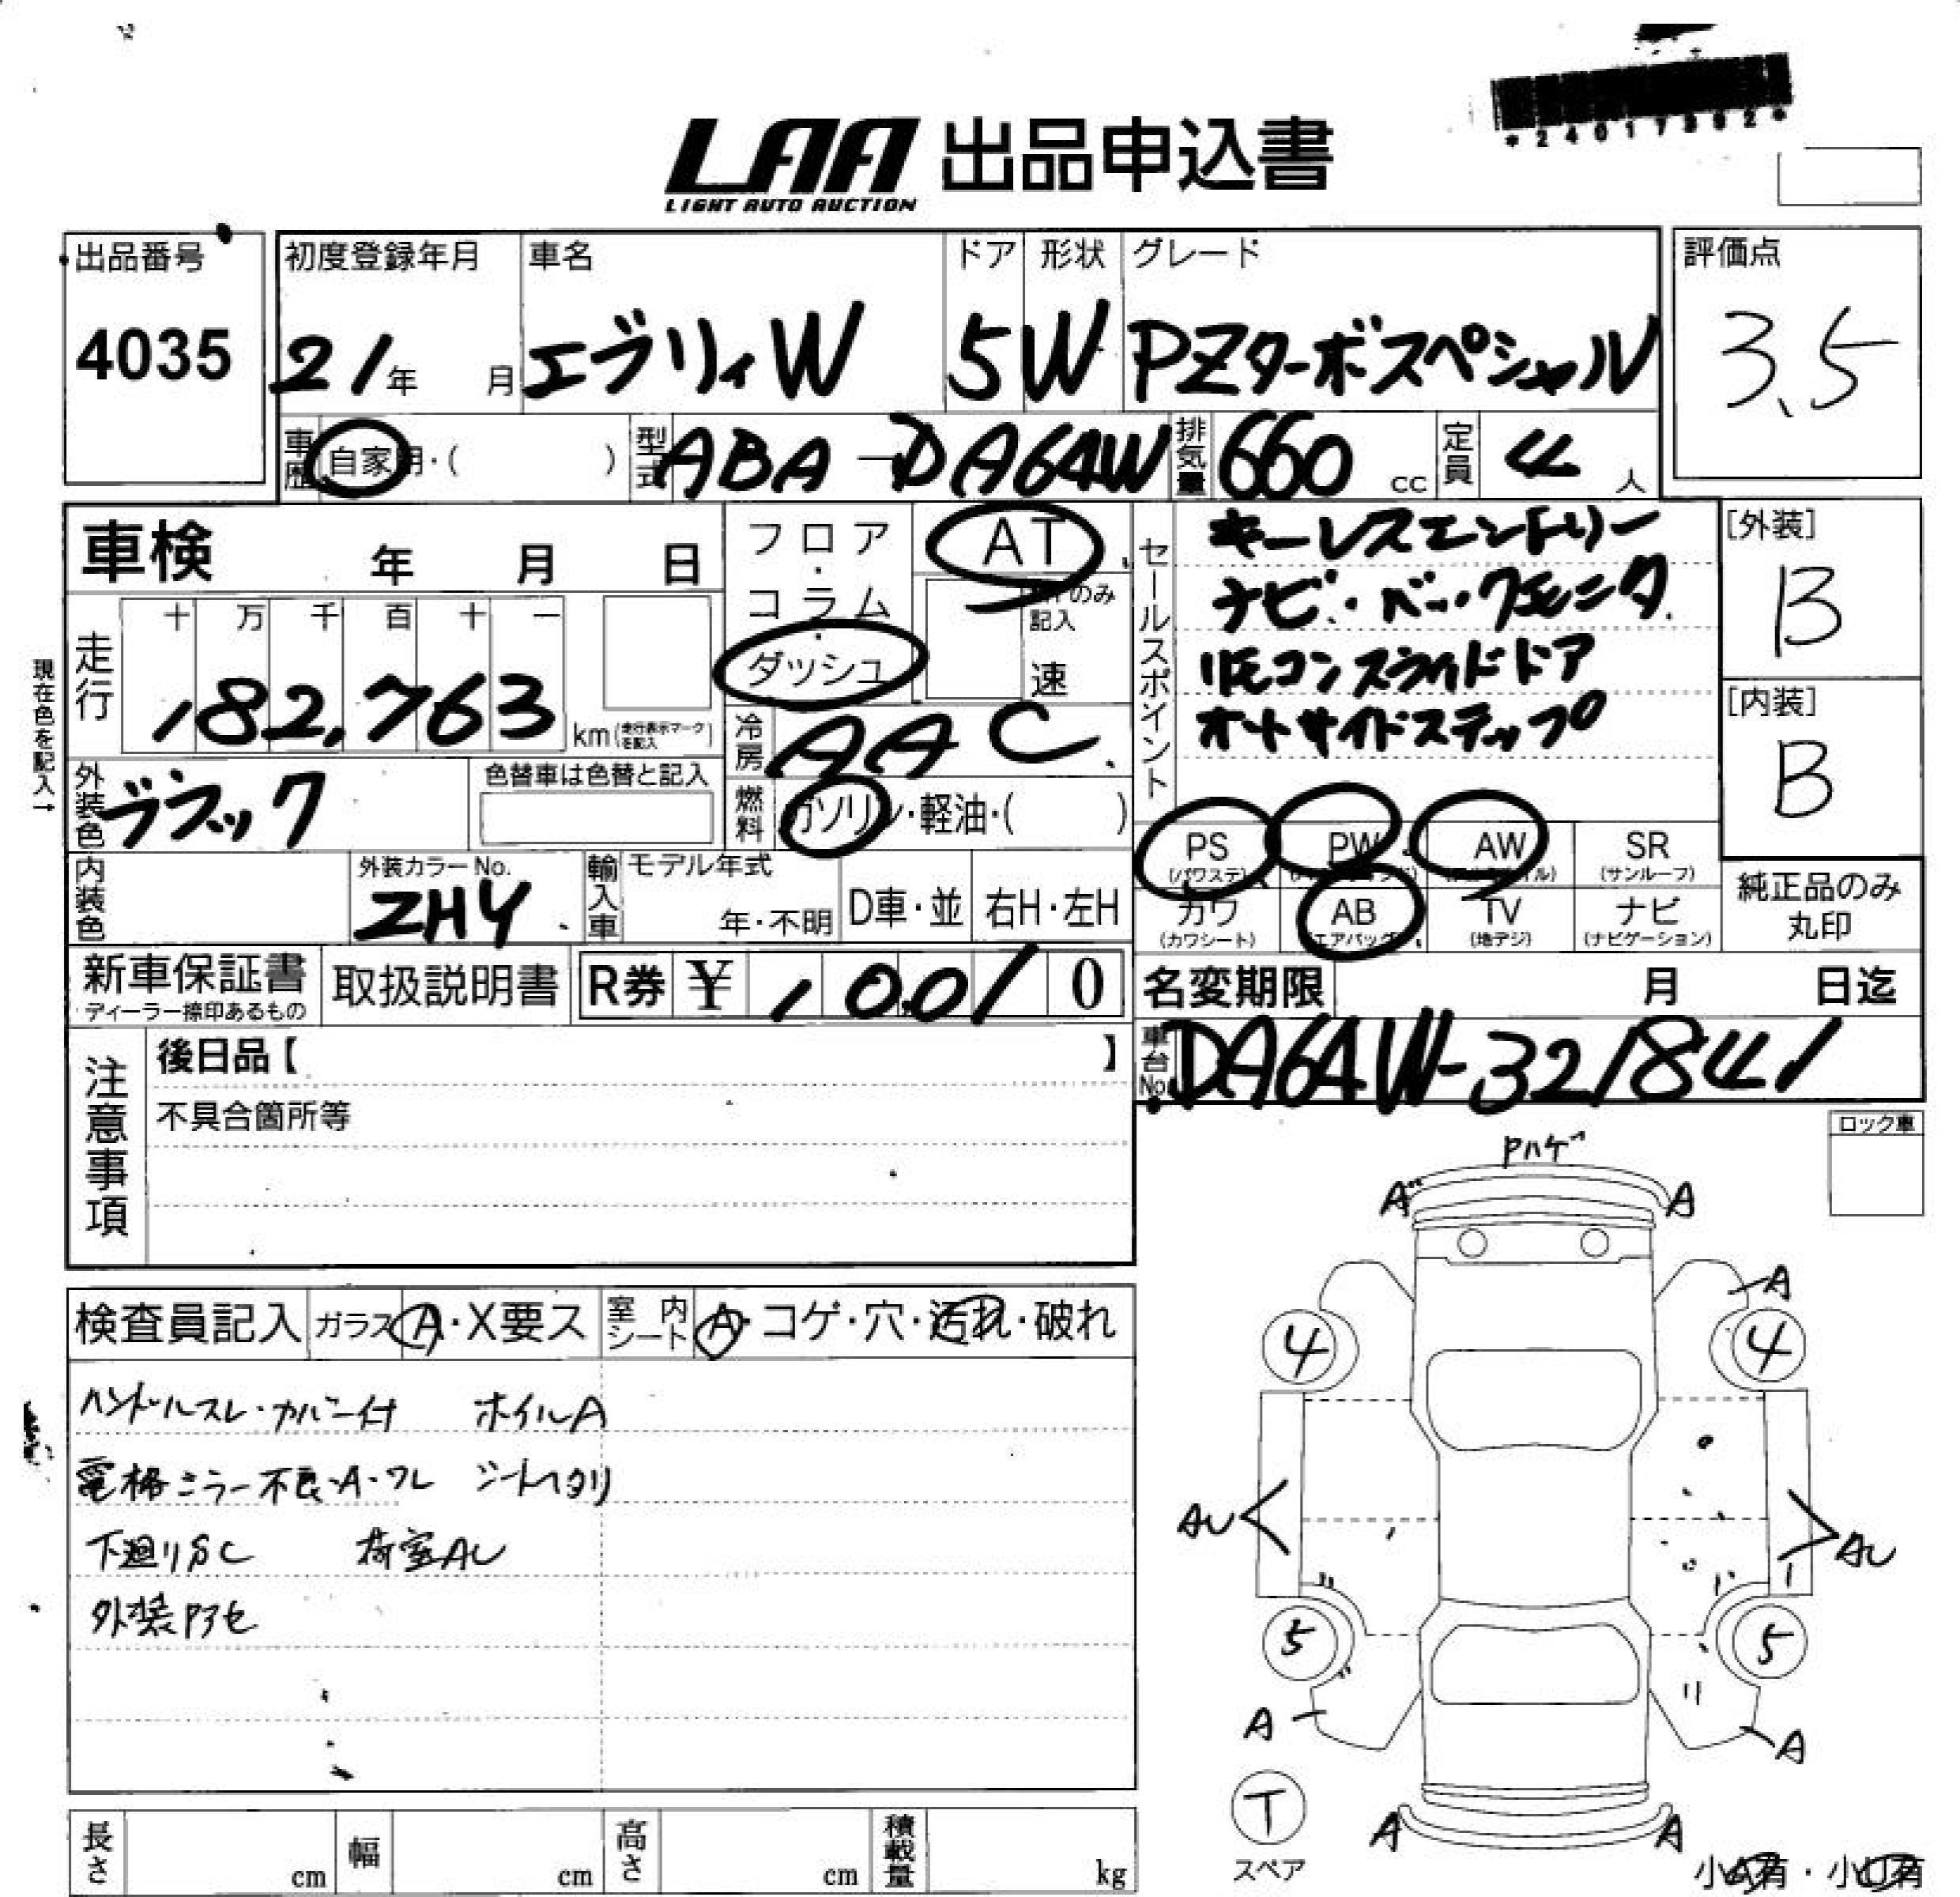 *24017392*
LAA 出品申込書
LIGHT AUTO AUCTION
出品番号 初度登録年月 車名 ドア 形状 グレード 評価点
4035 21年 月 エブリィW 5 W PZターボスペシャル 3.5
車歴 自家用・( ) 型式 ABA-DA64W 排気量 660 cc 定員 4 人
車検 年 月 日
フロア・コラム・ダッシュ
AT
のみ記入
速
セールスポイント
キーレスエントリー
ナビ・バックモニタ
リモコンスライドドア
オートサイドステップ
[外装]
B
[内装]
B
現在色を記入→
走行 十 万 千 百 十 一
182,763 km (走行表示マークを記入)
冷房 AAC
外装色 ブラック 色替車は色替と記入
燃料 ガソリン・軽油・( )
PS (パワステ) PW AW SR (サンルーフ)
カワ (カワシート) AB (エアバッグ) TV (地デジ) ナビ (ナビゲーション)
純正品のみ丸印
内装色 外装カラーNo. ZHY 輸入車 モデル年式 年・不明 D車・並 右H・左H
新車保証書 ディーラー捺印あるもの 取扱説明書 R券 ¥ 10010
名変期限 月 日迄
車台No. DA64W-321841
注意事項
後日品【 】
不具合箇所等
ロック車
Pハゲ
A A
A
4 4
AU AU
5 5
A A
T
スペア
A A
小A有・小U有
検査員記入 ガラス A・X要ス 室内シート A・コゲ・穴・汚れ・破れ
ハンドルスレ・カバー付 ホイルA
電格ミラー不良・A・ワレ シートヘタリ
下廻りSC 荷室AU
外装Pアセ
長さ cm 幅 cm 高さ cm 積載量 kg